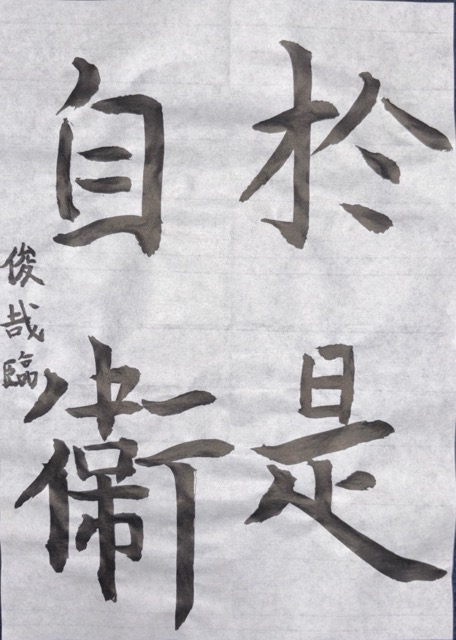 於是
自衛
俊哉臨